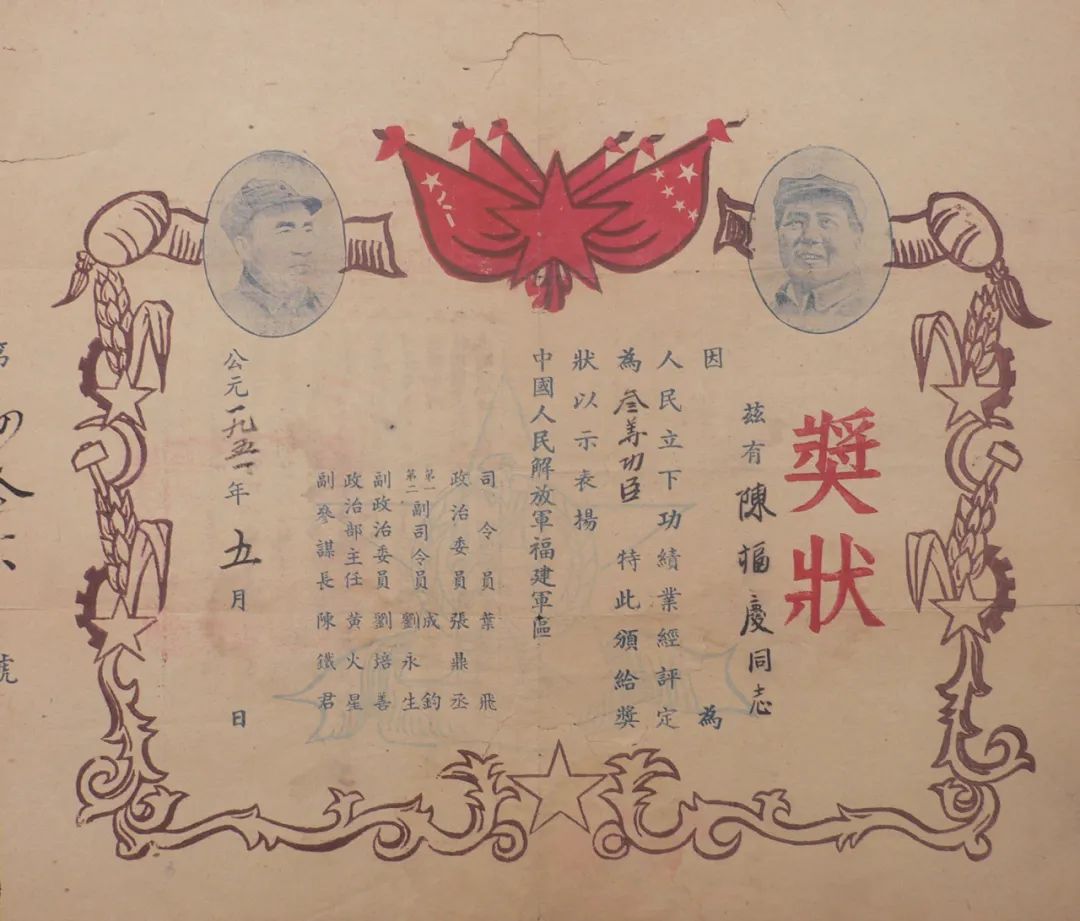 獎狀
茲有陳福慶同志
因 為
人民立下功績業經評定
為叁等功臣 特此頒給獎
狀以示表揚
中國人民解放軍福建軍區
司令員葉飛
政治委員張鼎丞
第一副司令員成鈞
第二副司令員劉永生
副政治委員劉培善
政治部主任黃火星
副參謀長陳鐵君
公元一九五一年五月 日
八一